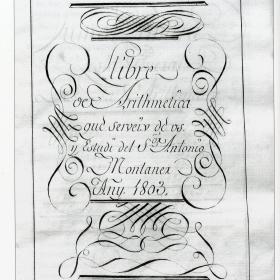 Llibre
de Arithmetica
que serveix de us
y Estudi del Sr. Antonio
Montaner
Any 1803.